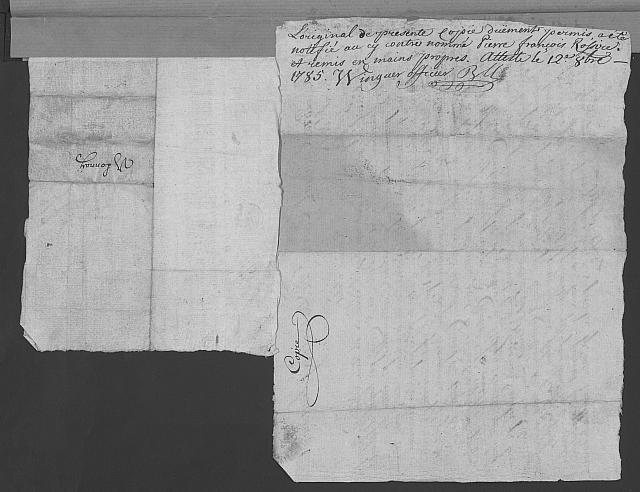 L'original de présente Copie düement permis, a été
notifié au cy contre nommé Pierre françois
et remis en mains propres. Atteste le 12e 8bre
1785. officier
Copie